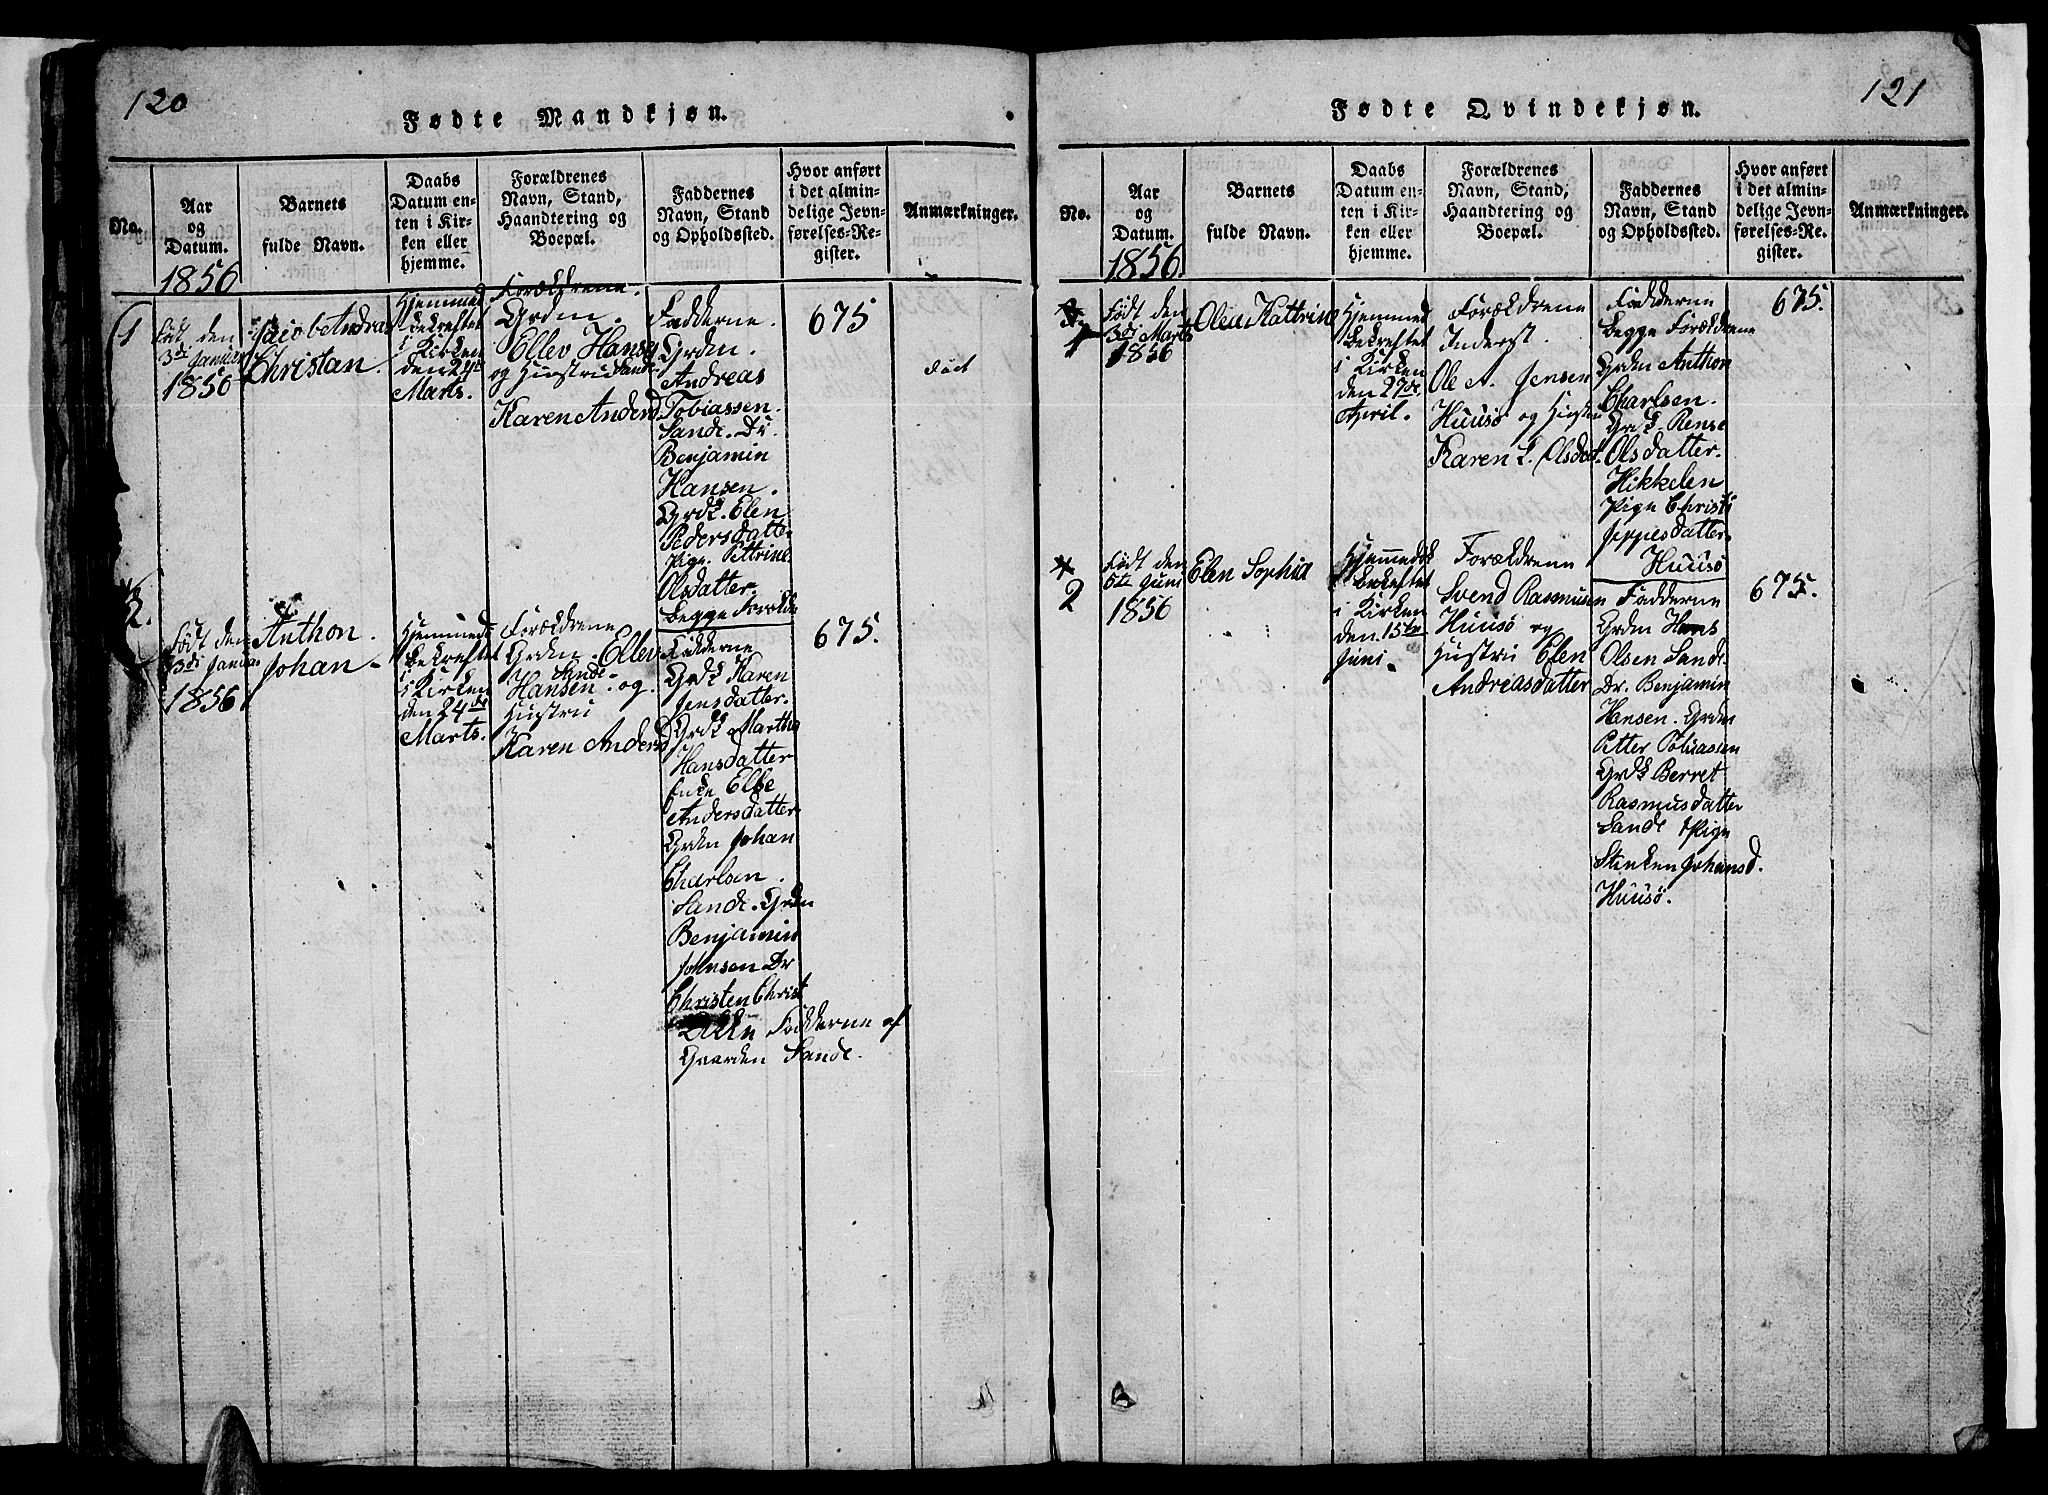 120
Fødte Mandkjøn.
No.
Aar
og
Datum.
1856
Barnets
fulde Navn.
Daabs
Datum en-
ten i Kir-
ken eller
hjemme.
Forældrenes
Navn, Stand,
Haandtering og
Boepæl.
Faddernes
Navn, Stand
og Opholdssted.
Hvor anført
i det almin-
delige Jevn-
førelses-Re-
gister.
Anmærkninger.
1
født den
3di Januar
1856
Jacob Andreas
Christan.
Hjemmed
bekreftet
i Kirken
den 24de
Marts.
Forældrene.
Grdm.
Ellev Hansen
og Hustru Sande
Karen Andersd
Fadderne.
Grdm.
Andreas
Tobiassen.
Sande. Do.
Benjamin
Hansen.
Grdk. Elen
Pedersdatter
Pige. Pettrine
Olsdatter
begge Forælde
675
død
2.
født den
3di Januar
1856
Anthon.
Johan
Hjemmedø
bekreftet
i Kirken
den 24de
Marts.
Forældrene
Grdm. Ellev
Sande
Hansen. og
Hustru
Karen Andersd
Fadderne
Grdk Karen
Jensdatter.
Grdk Martha
Hansdatter
Enke Elbe
Andersdatter
Grdm Johan
Charlsen.
Sande. Grdm
Benjamin
Johnsen Do
Christen Christ
Alle Fadderne af
Gaarden Sande.
675.
121
Fødte Qvindekjøn.
No.
Aar
og
Datum.
1856.
Barnets
fulde Navn.
Daabs
Datum en-
ten i Kir-
ken eller
hjemme.
Forældrenes
Navn, Stand,
Haandtering og
Boepæl.
Faddernes
Navn, Stand
og Opholdssted.
Hvor anført
i det almin-
delige Jevn-
førelses-Re-
gister.
Anmærkninger.
1
født den
3di Marts
1856
Olea Kattrine
Hjemmed
bekreftet
i Kirken
den 27de
April.
Forældrene
Inderst.
Ole A. Jensen
Huusø og Hustru
Karen L. Olsdat.
Fadderne
begge Forældrene
Grdm Anthon
Charlsen.
Grdk. Rense
Olsdatter.
Hikkelen
Pige Christi
Jeppesdatter
Huusø
675.
2
født den
6te Juni
1856
Elen Sophia
Hjemmedøb
bekreftet
i Kirken
den 15te
Juni.
Forældrene
Svend Rasmusen
Huusø og
Hustru Elen
Andreasdatter
Fadderne
Grdm Hans
Olsen Sande
Do. Benjamin
Hansen. Grdm
Petter Tobiassen
Grdk Berret
Rasmusdatter
Sande Pige
Stenken Johansd.
Huusø.
675.